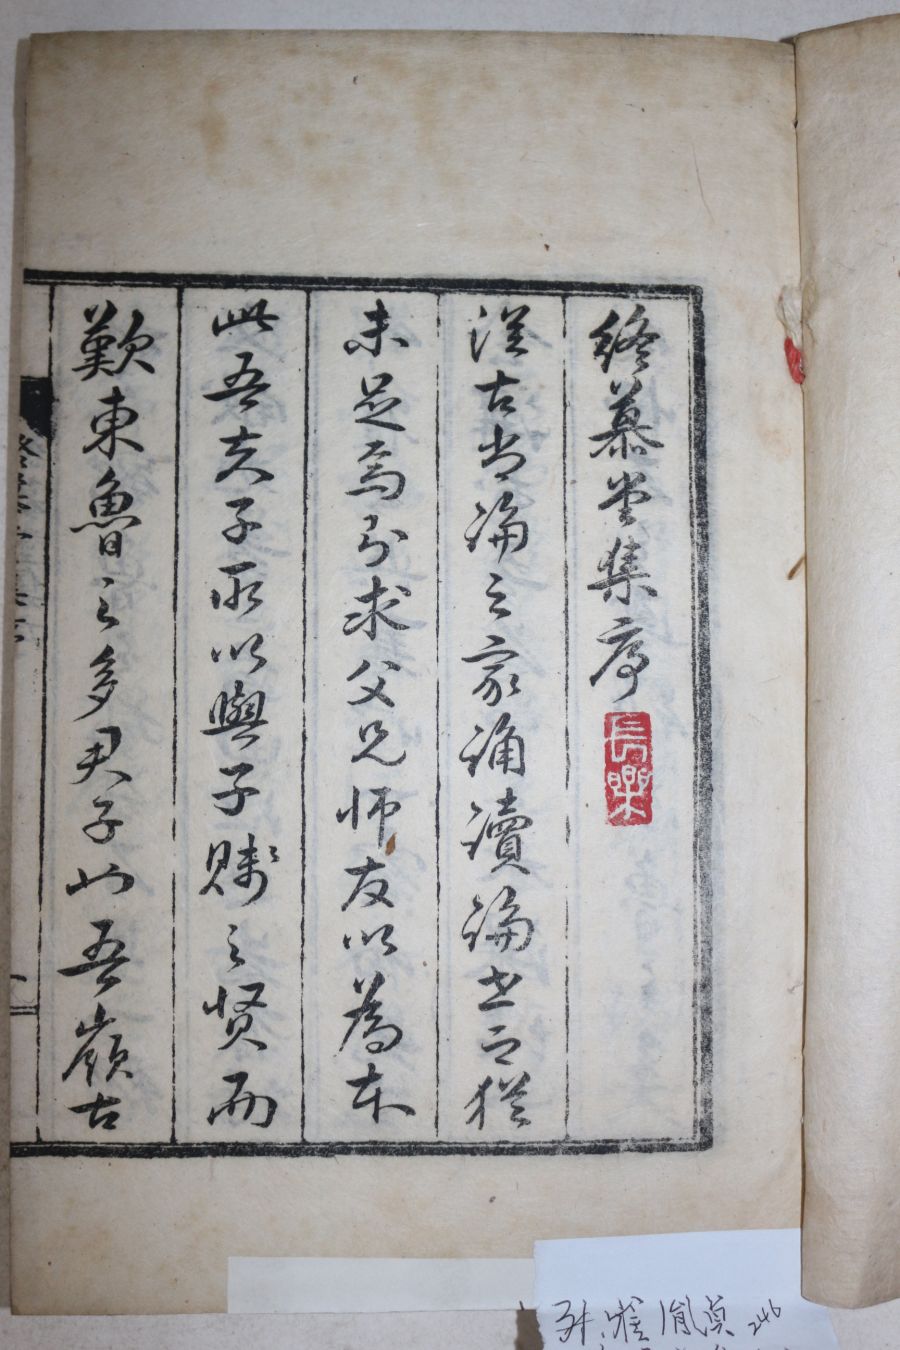 終慕堂集序
長樂
從古尚論之家誦讀論世之猶
未足焉引求父兄師友以為本
此吾夫子所以與子賤之賢而
歎東魯之多君子也吾嶺古
246